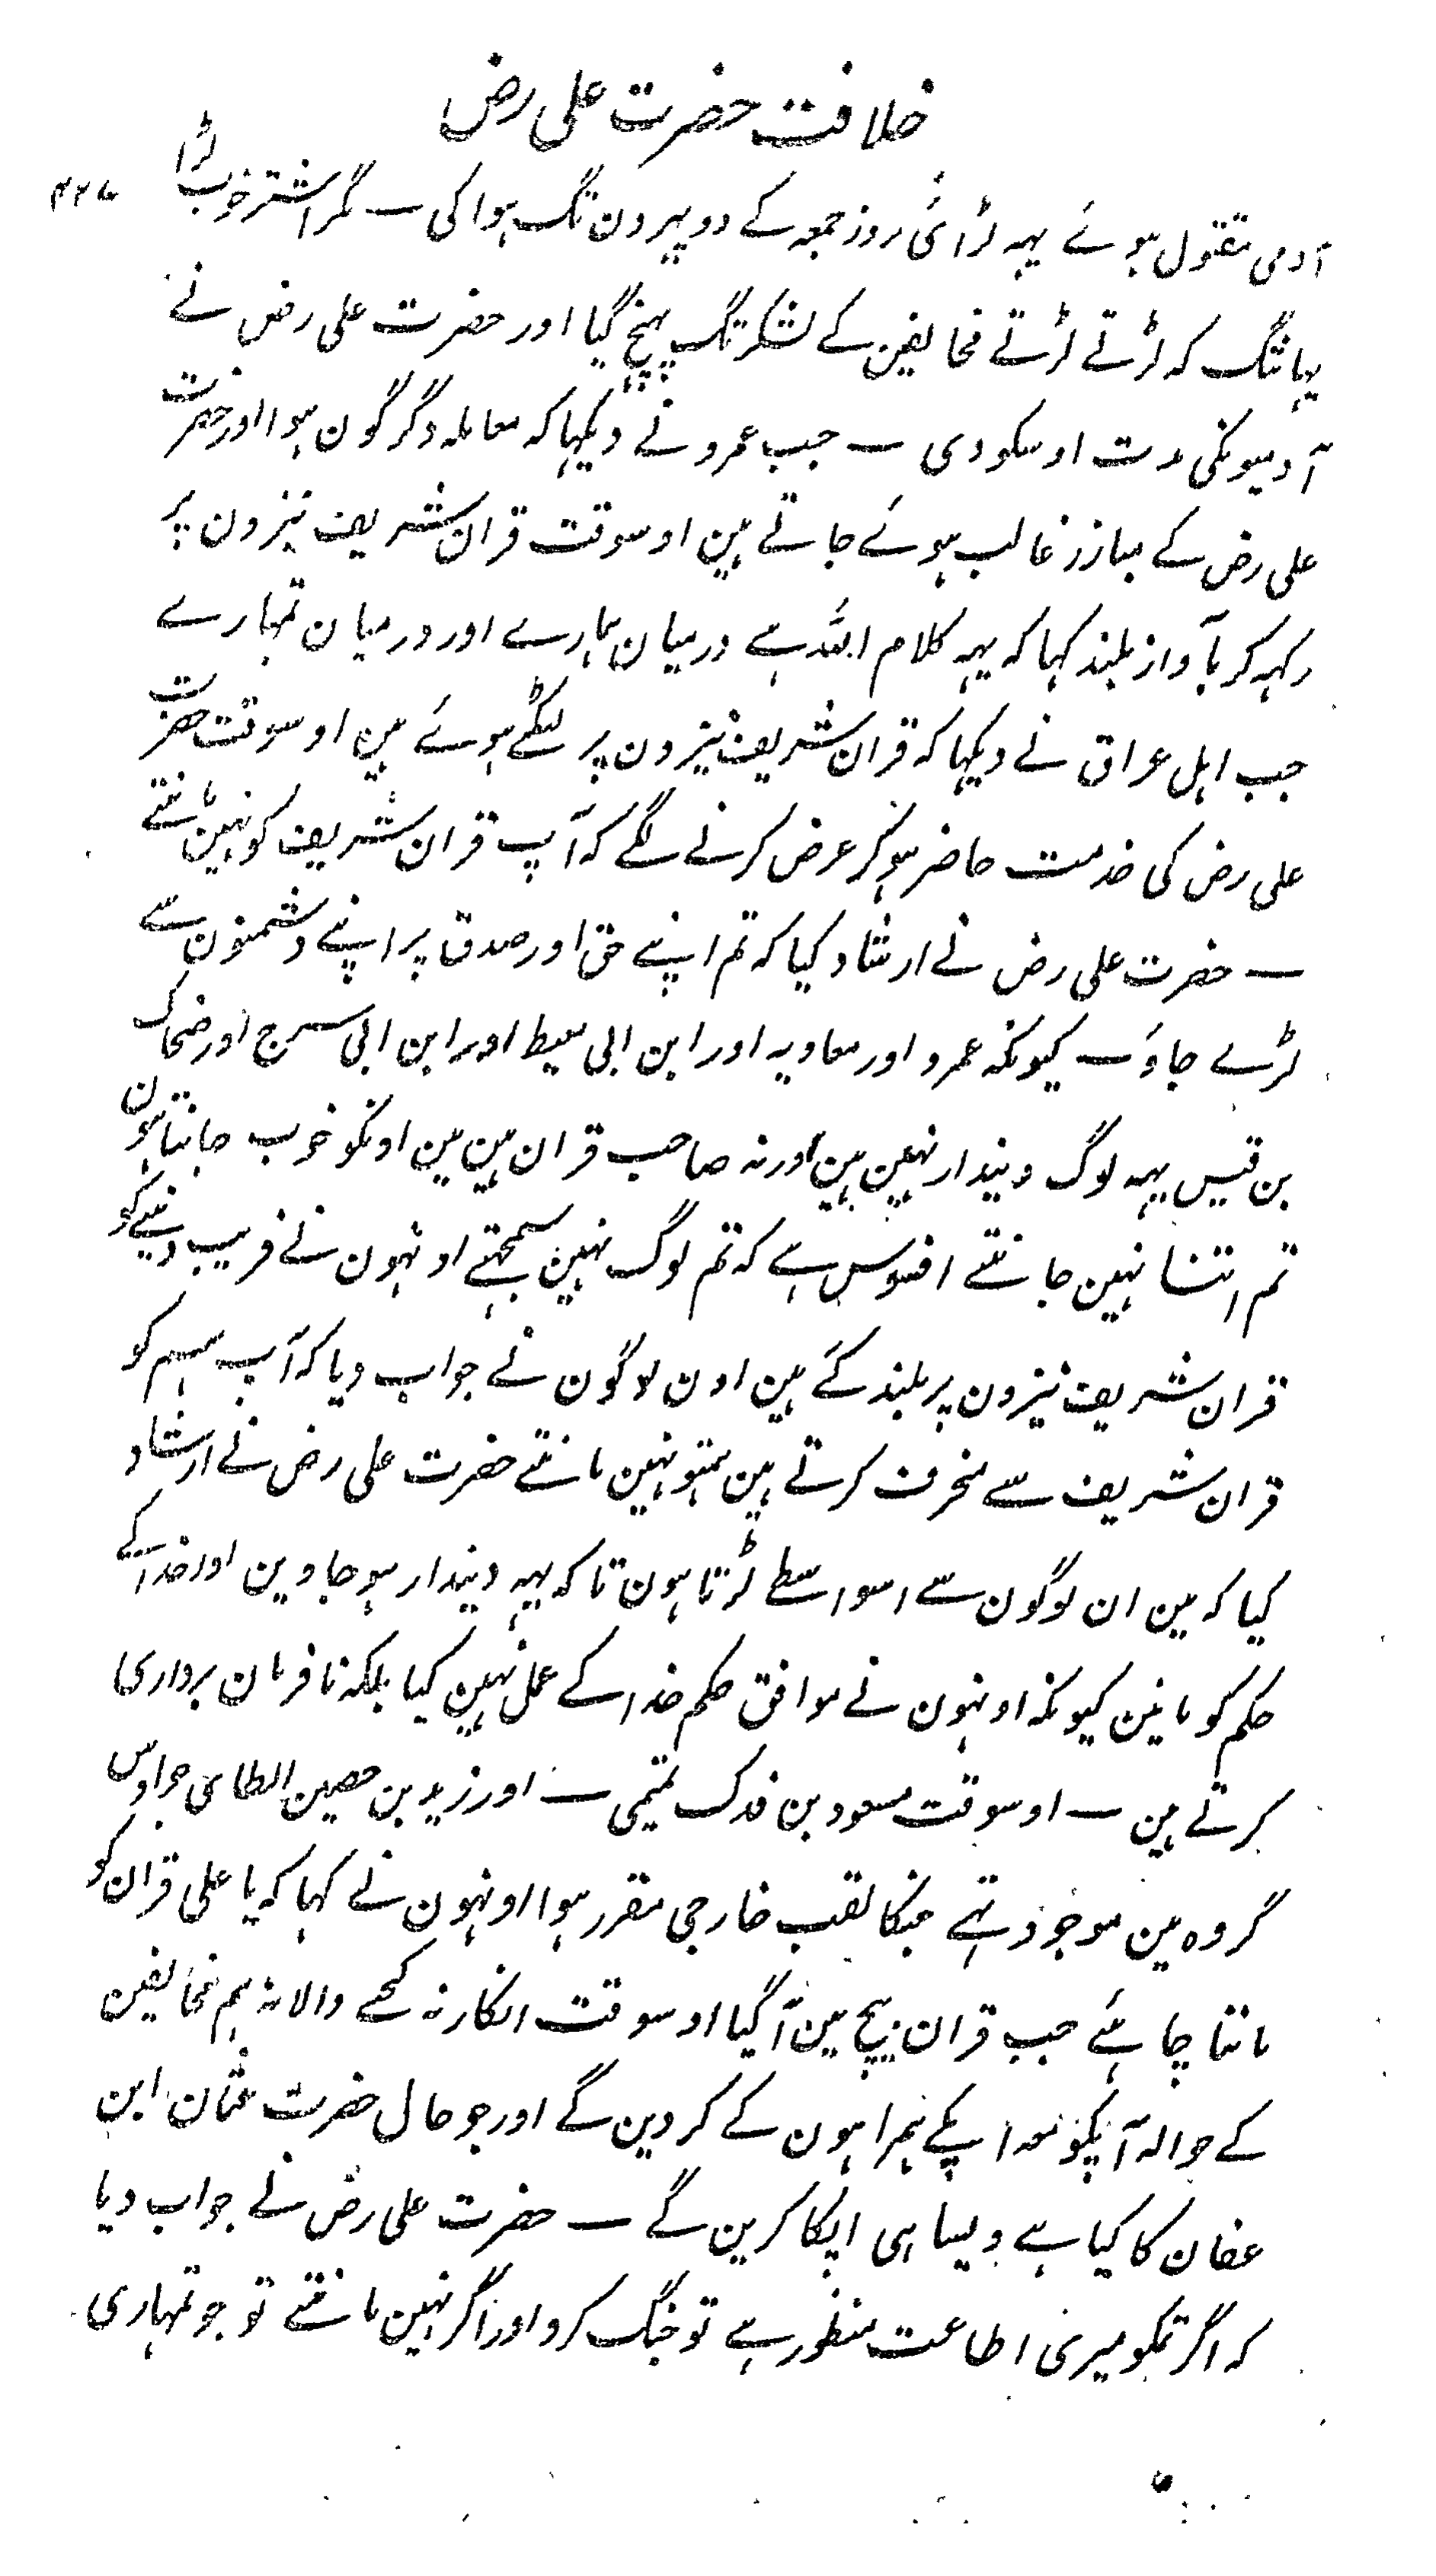 خلافت حضرت علی رض
آدمی مقتول ہوئے یہہ لڑائی روز جمعہ کے دوپہر دن تک ہوا کی ـ مگر اشتر خوب لڑا
یہانتک کہ لڑتے لڑتے مخالفین کے لشکر تک پہنچ گیا اور حضرت علی رض نے
آدمیونکی مدت اوسکو دی ـ جب عمرو نے دیکہا کہ معاملہ دگرگون ہوا اور حضرت
علی رض کے مبارز غالب ہوئے جاتے ہین اوسوقت قران شریف نیزون پر
رکہہ کر بآواز بلند کہا کہ یہہ کلام اللہ ہے درمیان ہمارے اور درمیان تمہارے
جب اہل عراق نے دیکہا کہ قران شریف نیزون پر لٹکے ہوئے ہین اوسوقت حضرت
علی رض کی خدمت حاضر ہوکر عرض کرنے لگے کہ آپ قران شریف کو نہین مانتے
ـ حضرت علی رض نے ارشاد کیا کہ تم اپنے حق اور صدق پر اپنے دشمنون سے
لڑے جاؤ ـ کیونکہ عمرو اور معاویہ اور ابن ابی معیط اور ابن ابی سرح اور ضحاک
بن قیس یہہ لوگ دیندار نہین ہین اور نہ صاحب قران ہین مین اونکو خوب جانتا ہون
تم اتنا نہین جانتے افسوس ہے کہ تم لوگ نہین سمجہتے اونہون نے فریب دینے کو
قران شریف نیزون پر بلند کئے ہین اون لوگون نے جواب دیا کہ آپ ہم کو
قران شریف سے منحرف کرتے ہین ہمتو نہین مانتے حضرت علی رض نے ارشاد
کیا کہ مین ان لوگون سے اسواسطے لڑتا ہون تاکہ یہہ دیندار ہوجاوین اور خدا کے
حکم کو مانین کیونکہ اونہون نے موافق حکم خدا کے عمل نہین کیا بلکہ نافرمان برداری
کرتے ہین ـ اوسوقت مسعود بن فدک تمیمی ـ اور زید بن حصین الطائی جو اوس
گروہ مین موجود تہے جنکا لقب خارجی مقرر ہوا اونہون نے کہا کہ یا علی قران کو
ماننا چاہئے جب قران بیچ مین آگیا اوسوقت انکار نہ کیجے والا نہ ہم مخالفین
کے حوالہ آپکو معہ اپکے ہمراہون کے کردین گے اور جو حال حضرت عثمان ابن
عفان کا کیا ہے ویسا ہی اپکا کرین گے ـ حضرت علی رض نے جواب دیا
کہ اگر تمکو میری اطاعت منظور ہے تو جنگ کرو اور اگر نہین مانتے تو جو تمہاری